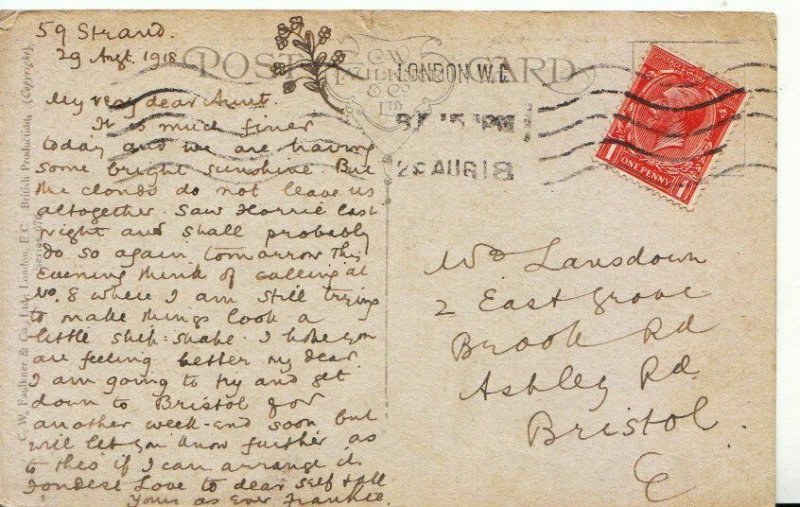 59 Strand.
29 Augt. 1918.
POST CARD
C.W.
FAULKNER
& Co
LTD
LONDON W.C
8 15 PM
29 AUG 18
ONE PENNY
My very dear Aunt.
It is much finer
today and we are having
some bright sunshine. But
the clouds do not leave us
altogether. Saw Horrie last
night and shall probably
do so again tomorrow This
Evening think of calling at
No. 8 where I am still trying
to make things look a
little ship-shape. I hope you
are feeling better my dear.
I am going to try and get
down to Bristol for
another week-end soon but
will let you know further as
to this if I can arrange it.
Fondest Love to dear self & all
Yours as Ever Frankie.
Lansdown
2 East Grove
Brook Rd
Ashley Rd.
Bristol.
C. W. Faulkner & Co., Ltd., London, E.C. British Production. (Copyright).
Series